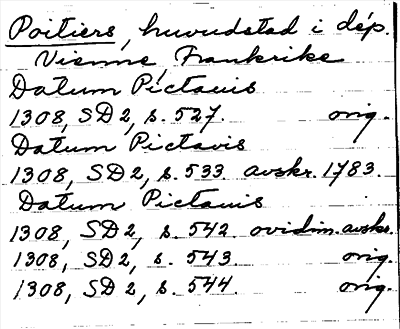 Poitiers, huvudstad i dép.
Vienne Frankrike
Datum Pictauis
1308, SD 2, s. 527. orig.
Datum Pictavis
1308, SD 2, s. 533 avskr. 1783.
Datum Pictauis
1308, SD 2, s. 542 ovidim. avskr.
1308, SD 2, s. 543. orig.
1308, SD 2, s. 544. orig.